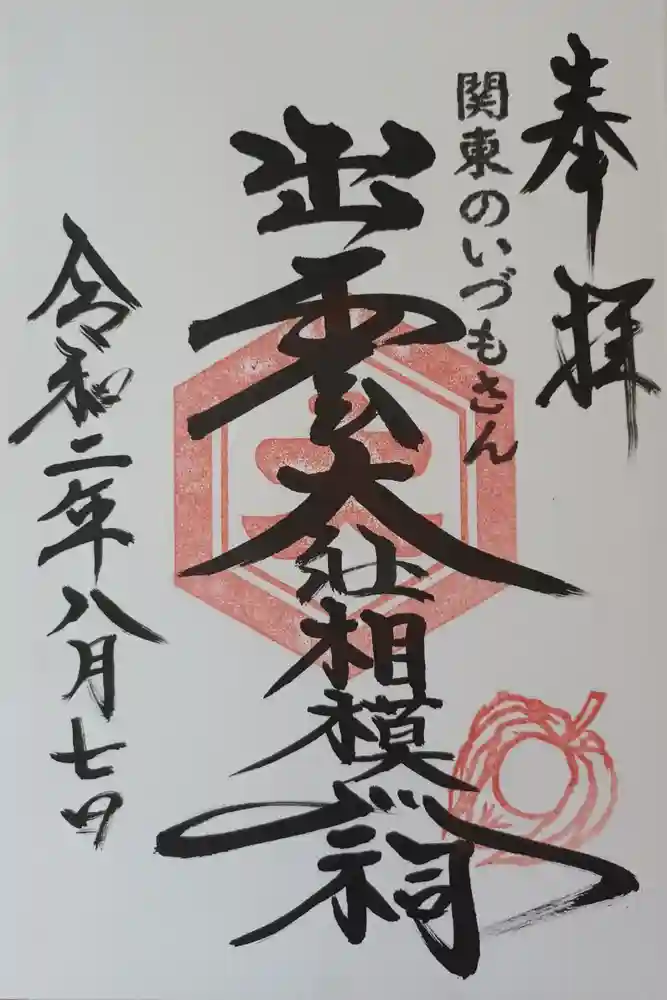 奉拝
関東のいづもさん
出雲大社相模分祠
令和二年八月七日